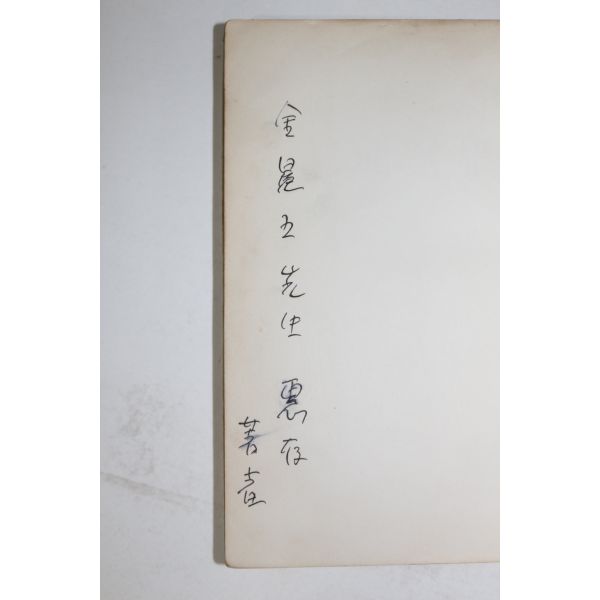 金 五 先生 惠存
著者